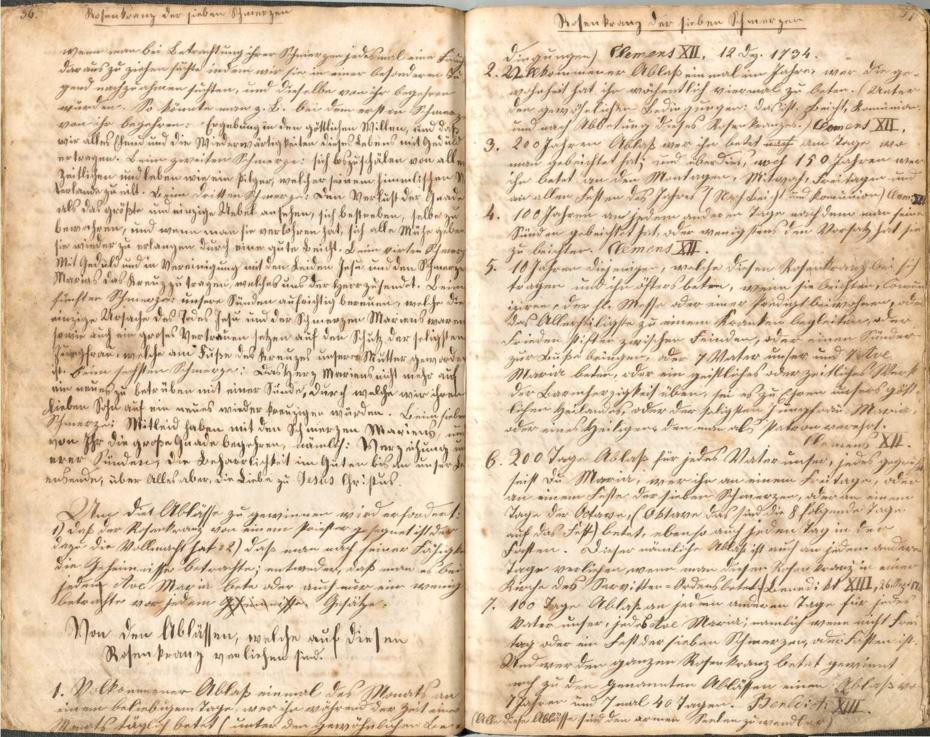 36.
Rosenkranz der sieben Schmerzen
wenn man bei Betrachtung ihrer Schmerzen jedesmal eine
daraus zu ziehen suchte indem wir sie in einer besonderen
gend nachzuahmen suchten, und dieselbe von ihr begehren
würden. So könnte man z.B. bei dem ersten Schmerz
von ihr begehren: Ergebung in den göttlichen Willen, und daß
wir alles Elend und die Wiederwärtigkeiten dieses Lebens mit Geduld
ertragen. Beim zweiten Schmerze: sich abzuschälen von allem
Zeitlichen und leben wie ein Pilger, welcher seinem himmlischen
Vaterlande zu eilt. Beim dritten Schmerze: Den Verlust der Gnade
als das größte und einzige Uebel ansehen, sich bestreben, selbe zu
bewahren, und wenn man sie verlohren hat, sich alle Mühe geben
sie wieder zu erlangen durch eine gute Beicht. Beim vierten Schmerz:
Mit Geduld und in Vereinigung mit den Leiden Jesu und den Schmerzen
Mariens das Kreuz zu tragen, welches uns der Herr zusendet. Beim
fünften Schmerze: unsere Sünden aufrichtig bereuen, welche die
einzige Ursache des Todes Jesu und der Schmerzen Mariens waren
sowie auch ein großes Vertrauen setzen auf den Schutz der seligsten
Jungfrau, welche am Fuße des Kreuzes unsere Mutter geworden
ist. Beim sechsten Schmerze: Das Herz Mariens nicht mehr auf
ein neues zu betrüben mit einer Sünde, durch welche wir ihren
lieben Sohn auf ein neues wieder kreuzigen würden. Beim sieben
Schmerze: Mitleid haben mit den Schmerzen Mariens, und
von Ihr die große Gnade begehren, nämlich: Verzeihung un
serer Sünden, die Beharrlichkeit im Guten bis an unser Le
bensende, über Alles aber, die Liebe zu Jesus Christus.
Um die Ablässe zu gewinnen wird erfordert:
1) daß der Rosenkranz von einem Priester gesegnet ist der
dazu die Vollmacht hat 2) daß man nach seiner Fähigkeit
die Geheimnisse betrachte; entweder, daß man es bei
jedem Ave Maria bete oder auch nur ein wenig
betrachte vor jedem Gesätze.
Von den Ablässen, welche auf diesen
Rosenkranz verliehen sind.
1. Vollkommener Ablaß einmal des Monats an
einem beliebigen Tage, wer ihn während der Zeit eines
Monats täglich betet (unter den gewöhnlichen Be
37.
Rosenkranz der sieben Schmerzen
dingungen) Clemens XII, 12 Dez. 1734.
2. Vollkommener Ablaß einmal im Jahre, wer die Ge-
wohnheit hat ihn wöchentlich viermal zu beten. (Unter
den gewöhnlichen Bedingungen: das ist, Beicht, Komunion
und nach Abbetung dieses Rosenkranzes.) Clemens XII.
3. 200 Jahren Ablaß wer ihn betet am Tage wo
man gebeichtet hat; und überdies, noch 150 Jahren wer
ihn betet an den Montagen, Mitwoch, Freitagen und
an allen Festen des Jahres (Nach Beicht und Komunion) Clem XII
4. 100 Jahren an jedem anderen Tage nachdem man seine
Sünden gebeichtet hat, oder wenigstens den Vorsatz hat sie
zu beichten. Clemens XII.
5. 10 Jahren diejenigen, welche diesen Rosenkranz bei sich
tragen und ihn öfters beten, wenn sie beichten, komun
iziren, der hl. Messe oder einer Predigt beiwohnen, oder
das Allerheiligste zu einem Kranken begleiten, oder
Frieden stiften zwischen Feinden, oder einen Sünder
zur Buße bringen, oder 7 Vater unser und 7 Ave
Maria beten, oder ein geistliches oder zeitliches Werk
der Barmherzigkeit üben, sei es zu Ehren unsers gött
lichen Heilandes, oder der seligsten Jungfrau Maria
oder eines Heiligen den man als Patron verehrt.
Clemens XII.
6. 200 Tage Ablaß für jedes Vater unser, jedes gegrü
seist du Maria, wer ihn an einem Freitage, oder
an einem Feste der sieben Schmerzen, oder an einem
Tage der Octave, (Oktave das sind die 8 folgende Tage
auf das Fest) betet, ebenso auf jeden Tag in der
Fasten. Dieser nämliche Ablaß ist auch an jedem anderen
Tage verliehen, wenn man diesen Rosenkranz in einer
Kirche des Servitten-Ordens betet. Benedikt XIII,
7. 100 Tage Ablaß an jedem anderen Tage für jedes
Vater unser, jedes Ave Maria; nämlich wenn nicht Frei
tag oder ein Fest der sieben Schmerzen, oder Fasten ist.
Und wer den ganzen Rosenkranz betet gewinnt
noch zu den genannten Ablässen einen Ablaß von
7 Jahren und 7 mal 40 Tagen. Benedict XIII.
(Alle diese Ablässe sind den armen Seelen zuwendbar)